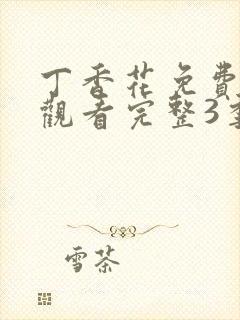 丁香花免费
觀看完整3季
雪茶